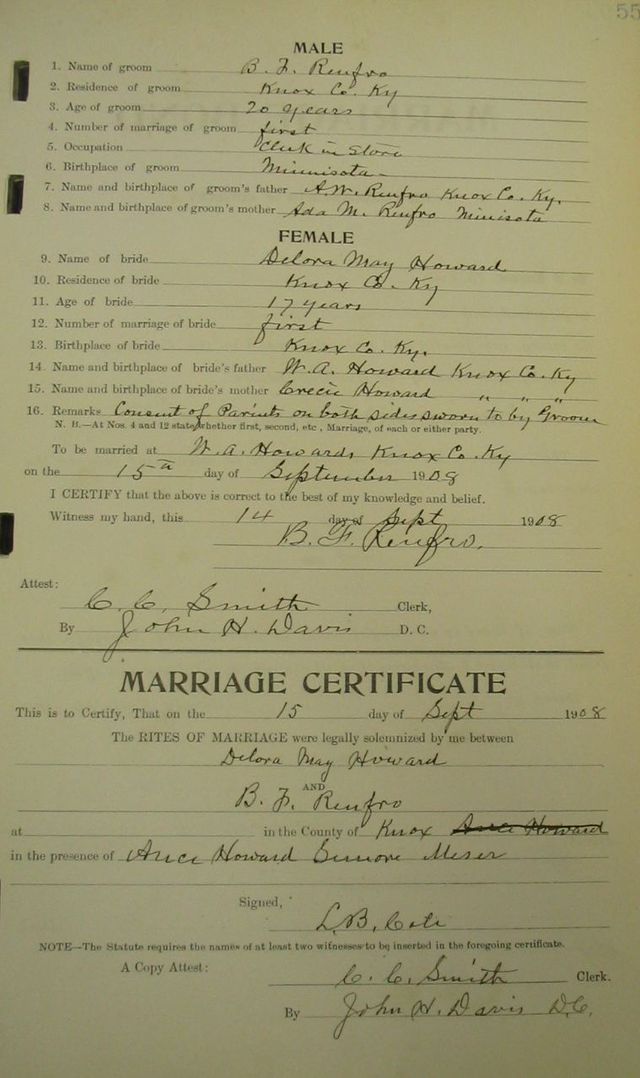 55
MALE
1. Name of groom B. F. Renfro
2. Residence of groom Knox Co. Ky
3. Age of groom 20 years
4. Number of marriage of groom first
5. Occupation Clerk in Store
6. Birthplace of groom Minnisota
7. Name and birthplace of groom's father A.W. Renfro Knox Co. Ky.
8. Name and birthplace of groom's mother Ada M. Renfro Minisota
FEMALE
9. Name of bride Delora May Howard
10. Residence of bride Knox Co. Ky
11. Age of bride 17 years
12. Number of marriage of bride first
13. Birthplace of bride Knox Co. Ky.
14. Name and birthplace of bride's father W. A. Howard Knox Co. Ky
15. Name and birthplace of bride's mother Howard " " "
16. Remarks Consent of Parints on both sides sworn to by Groom
N. B.—At Nos. 4 and 12 state whether first, second, etc., Marriage, of each or either party.
To be married at W. A. Howards Knox Co. Ky
on the 15th day of September 1908
I CERTIFY that the above is correct to the best of my knowledge and belief.
Witness my hand, this 14 day of Sept 1908
B. F. Renfro.
Attest:
C. C. Smith Clerk,
By John H. Davis D. C.
MARRIAGE CERTIFICATE
This is to Certify, That on the 15 day of Sept 1908
The RITES OF MARRIAGE were legally solemnized by me between
Delora May Howard
AND
B. F. Renfro
at in the County of Knox Howard
in the presence of Howard Meser
Signed,
L. B. Cole
NOTE—The Statute requires the names of at least two witnesses to be inserted in the foregoing certificate.
A Copy Attest:
C. C. Smith Clerk.
By John H. Davis D.C.